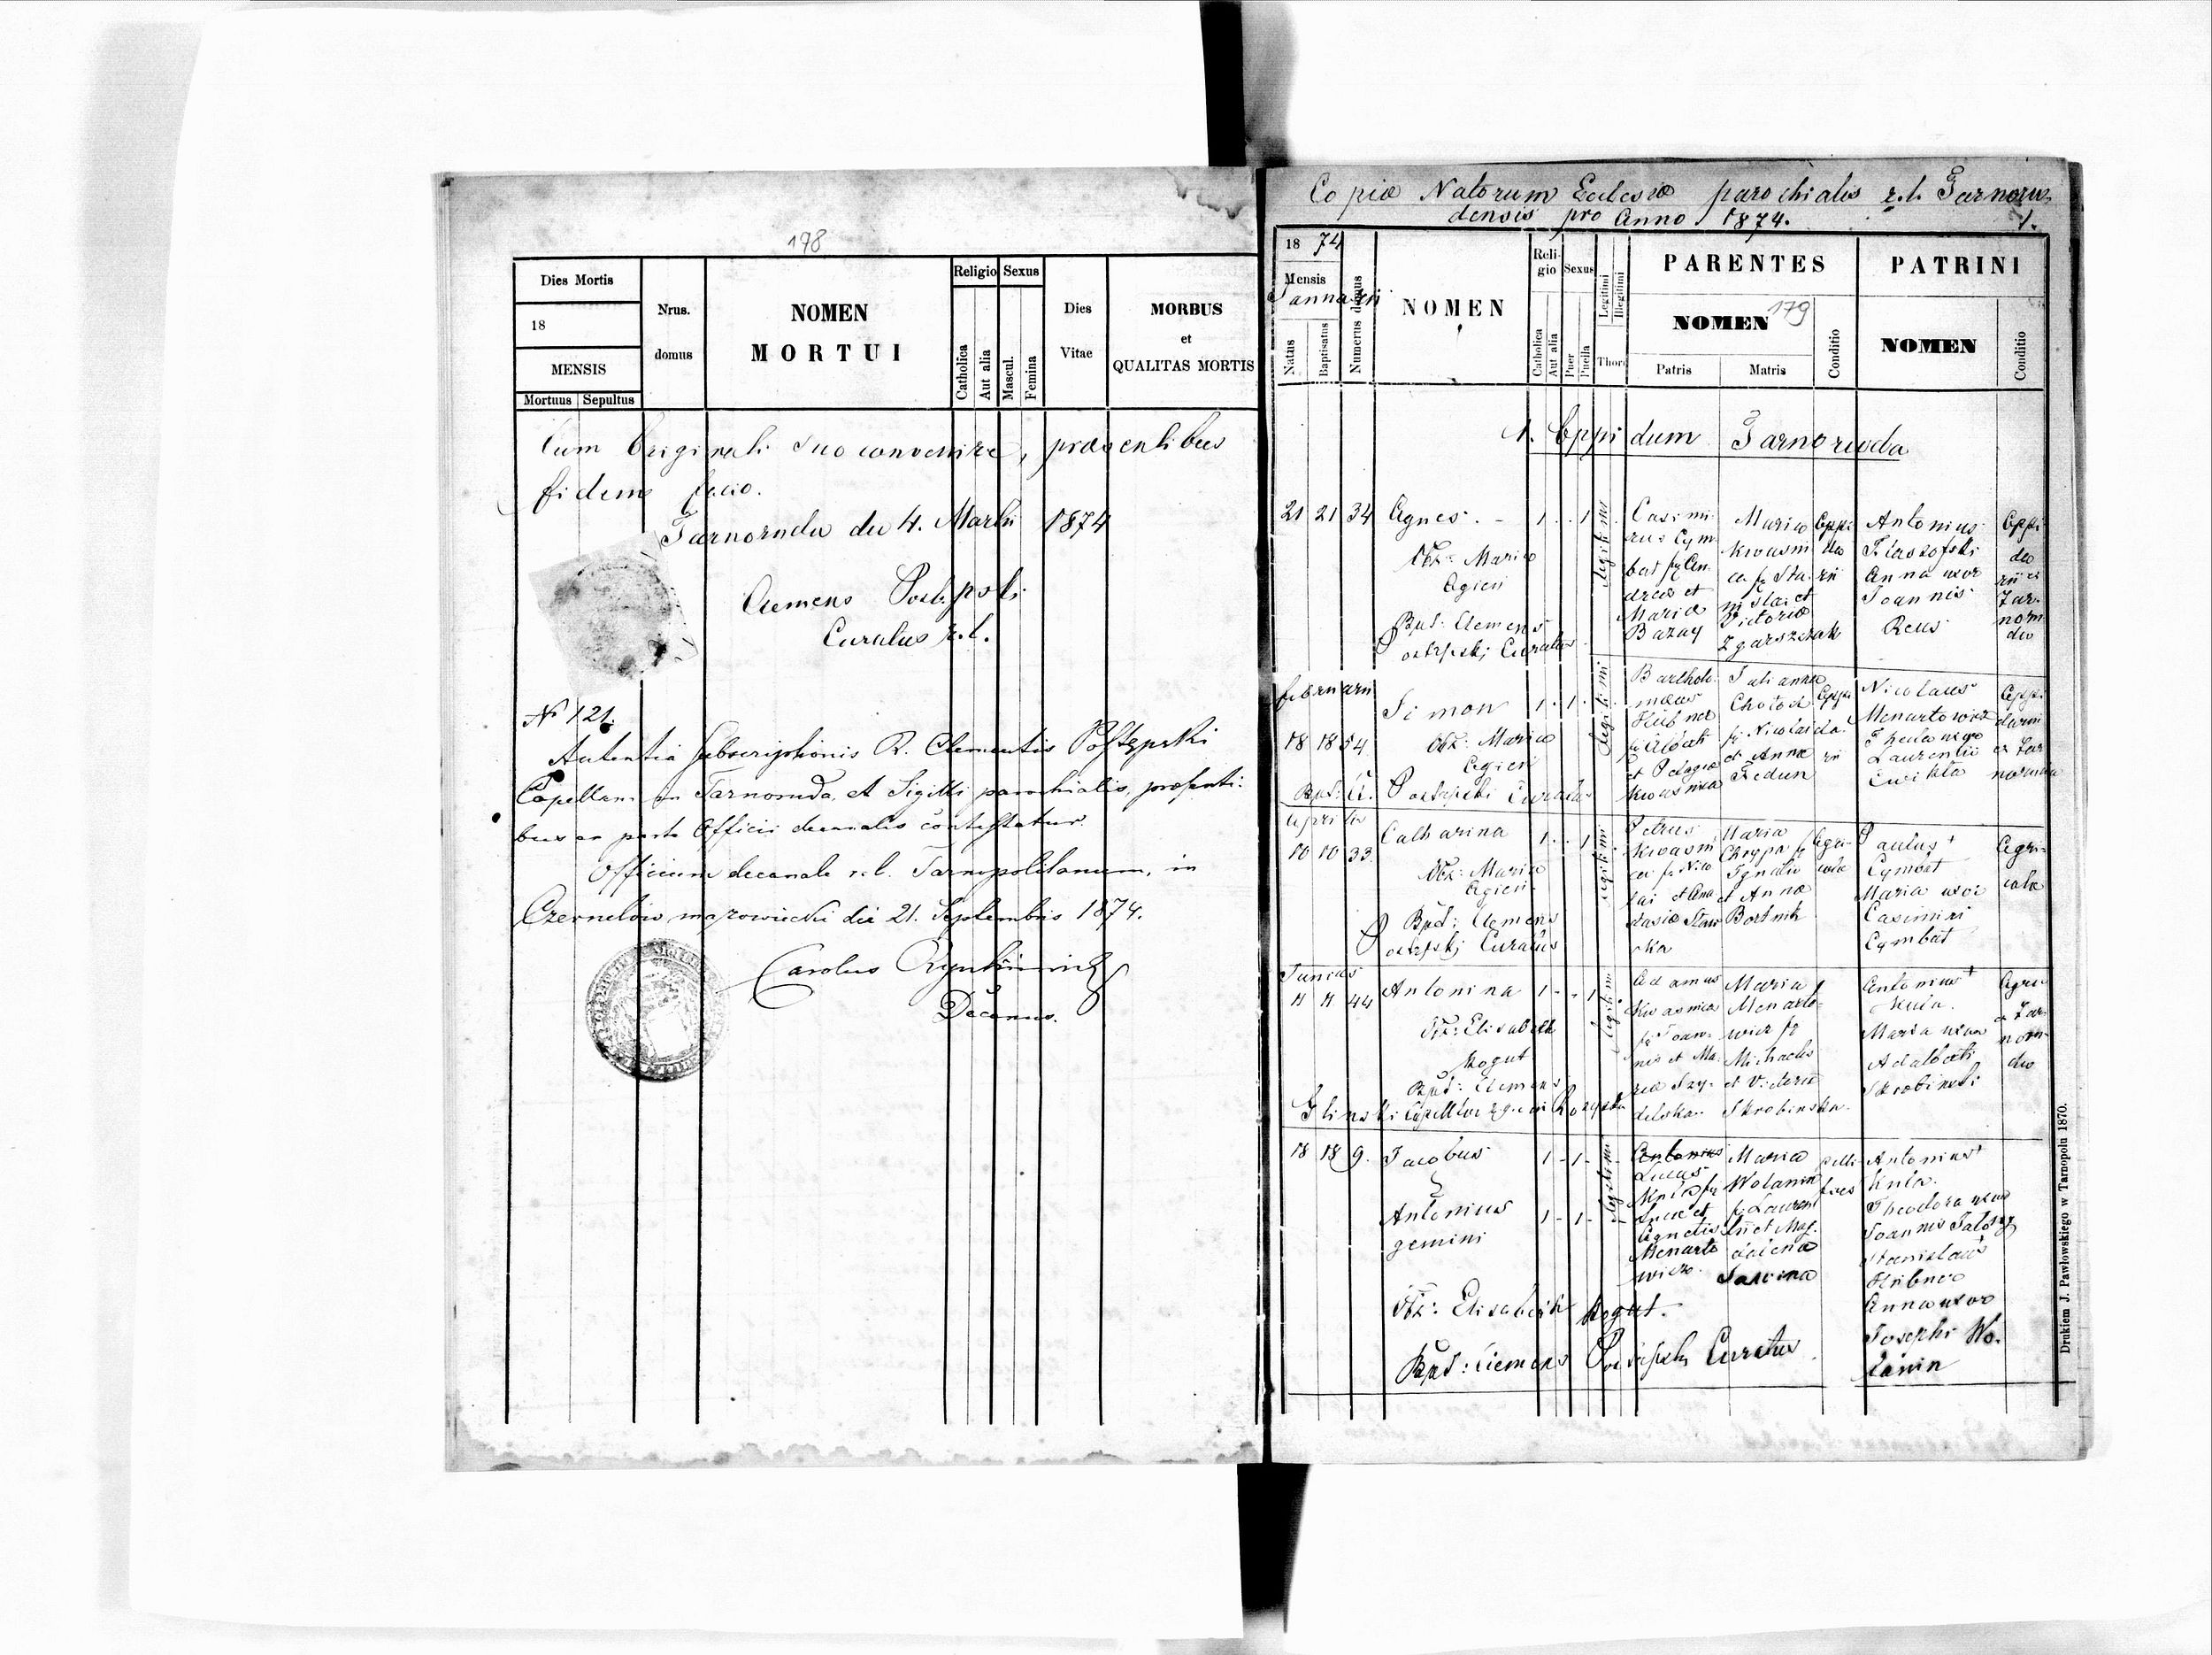 178
Dies Mortis
18
MENSIS
Mortuus Sepultus
Nrus.
domus
NOMEN
MORTUI
Religio Sexus
Catholica
Aut alia
Mascul.
Femina
Dies
Vitae
MORBUS
et
QUALITAS MORTIS
Cum Originali suo convenire, praesentibus
fidem facio.
Tarnoruda die 4. Martii 1874
Clemens Postępski
Curatus r.l.
N 121.
Autentia subscriptionis R. Clementis Postępski
Capellani in Tarnoruda, et Sigilli parochialis, praesenti-
bus ex parte Officii decanalis contestatur.
Officium decanale r.l. Tarnopolitanum, in
Czernelów mazowiecki die 21. Septembris 1874.
Carolus
Decanus.
Copia Natorum Ecclesiæ parochialis r.l. Tarnoru-
densis pro Anno 1874.
1.
18 74
Mensis
Januarii
Natus
Baptisatus
Numerus domus
NOMEN
Reli-
gio
Sexus
Catholica
Aut alia
Puer
Puella
Legitimi
Illegitimi
Thori
PARENTES
179
NOMEN
Patris
Matris
Conditio
PATRINI
NOMEN
Conditio
1. Oppidum Tarnoruda
21 21 34 Agnes. - 1 . . 1 legitimi
Obs: Maria
Agien
Bapt: Clemens
Postępski Curatus
Casimi-
rus Cym
bat f. An.
dreæ et
Mariæ
Bazay
Maria
Kwasni
ca f. Sta.
nislai et
Victoriæ
Zgarszczak
Oppi
da
rii
Antonius
Anna uxor
Joannis
Reus
Oppi
da
rii ex
Tar-
noru
da
Februarii
18 18 54 Simon 1 . 1 . legitimi
Obs: Maria
Agien
Bapt: Cl. Postępski Curatus
Bartholo-
mæus
Hübner
f. Alberti
et Pelagiæ
Kwasnica
Julianna
Chołod
f. Nicolai
et Annæ
Fedun
Oppi
da
rii
Nicolaus
Menartowicz
Thecla uxor
Laurentii
Ćwikła
Oppi
darii
ex Tar
noruda
Aprilis
10 10 33. Catharina 1 . . 1 legitimi
Obs: Maria
Agien
Bapt: Clemens
Postępski Curatus
Petrus
Kwasni
ca f. Nico
lai et Ana
stasiæ Staw
ska
Maria
Chrypa f.
Ignatii
et Annæ
Bortnik
Agri-
colæ
Paulus +
Cymbat
Maria uxor
Casimiri
Cymbat
Agri-
colæ
Junius
11 11 44 Antonina 1 - - 1 legitimi
Obs: Elisabeth
Kogut
Bapt: Clemens
Adamus
Kwasnica
f. Joan-
nis et Ma-
riæ Szy-
delska
Maria
Menarto-
wicz f.
Michaelis
et Victoriæ
Skrobinska.
Antonius +
Kula.
Maria uxor
Adalberti
Skrobinski
Agri.
ex Tar
noru-
da
18 18 9. Jacobus 1 - 1 - legitimi
Antonius 1 - 1 -
gemini
Obs: Elisabeth Kogut.
Bapt: Clemens Postępski Curatus
Antonius
Lucas
Kula f.
Lucæ et
Agnetis
Menarto
wicz.
Maria
Wolanin
f. Lauren
tii et Mag-
dalenæ
pelli-
fices
Antonius +
Kula.
Theodora uxor
Joannis
Stanislaus
Hübner
Anna uxor
Josephi Wo-
lanin
Drukiem J. Pawłowskiego w Tarnopolu 1870.